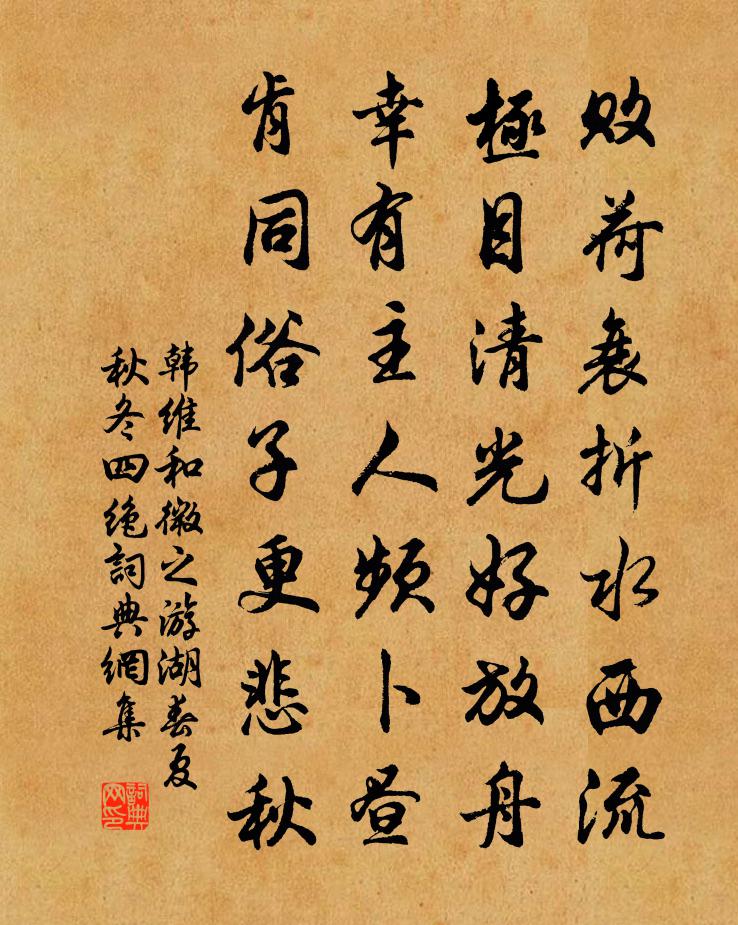 败荷衰折水西流
極目清光好放舟
幸有主人頻卜晝
肯同俗子更悲秋
韩维和微之游湖春夏
秋冬四绝詞典網集
詞典网印